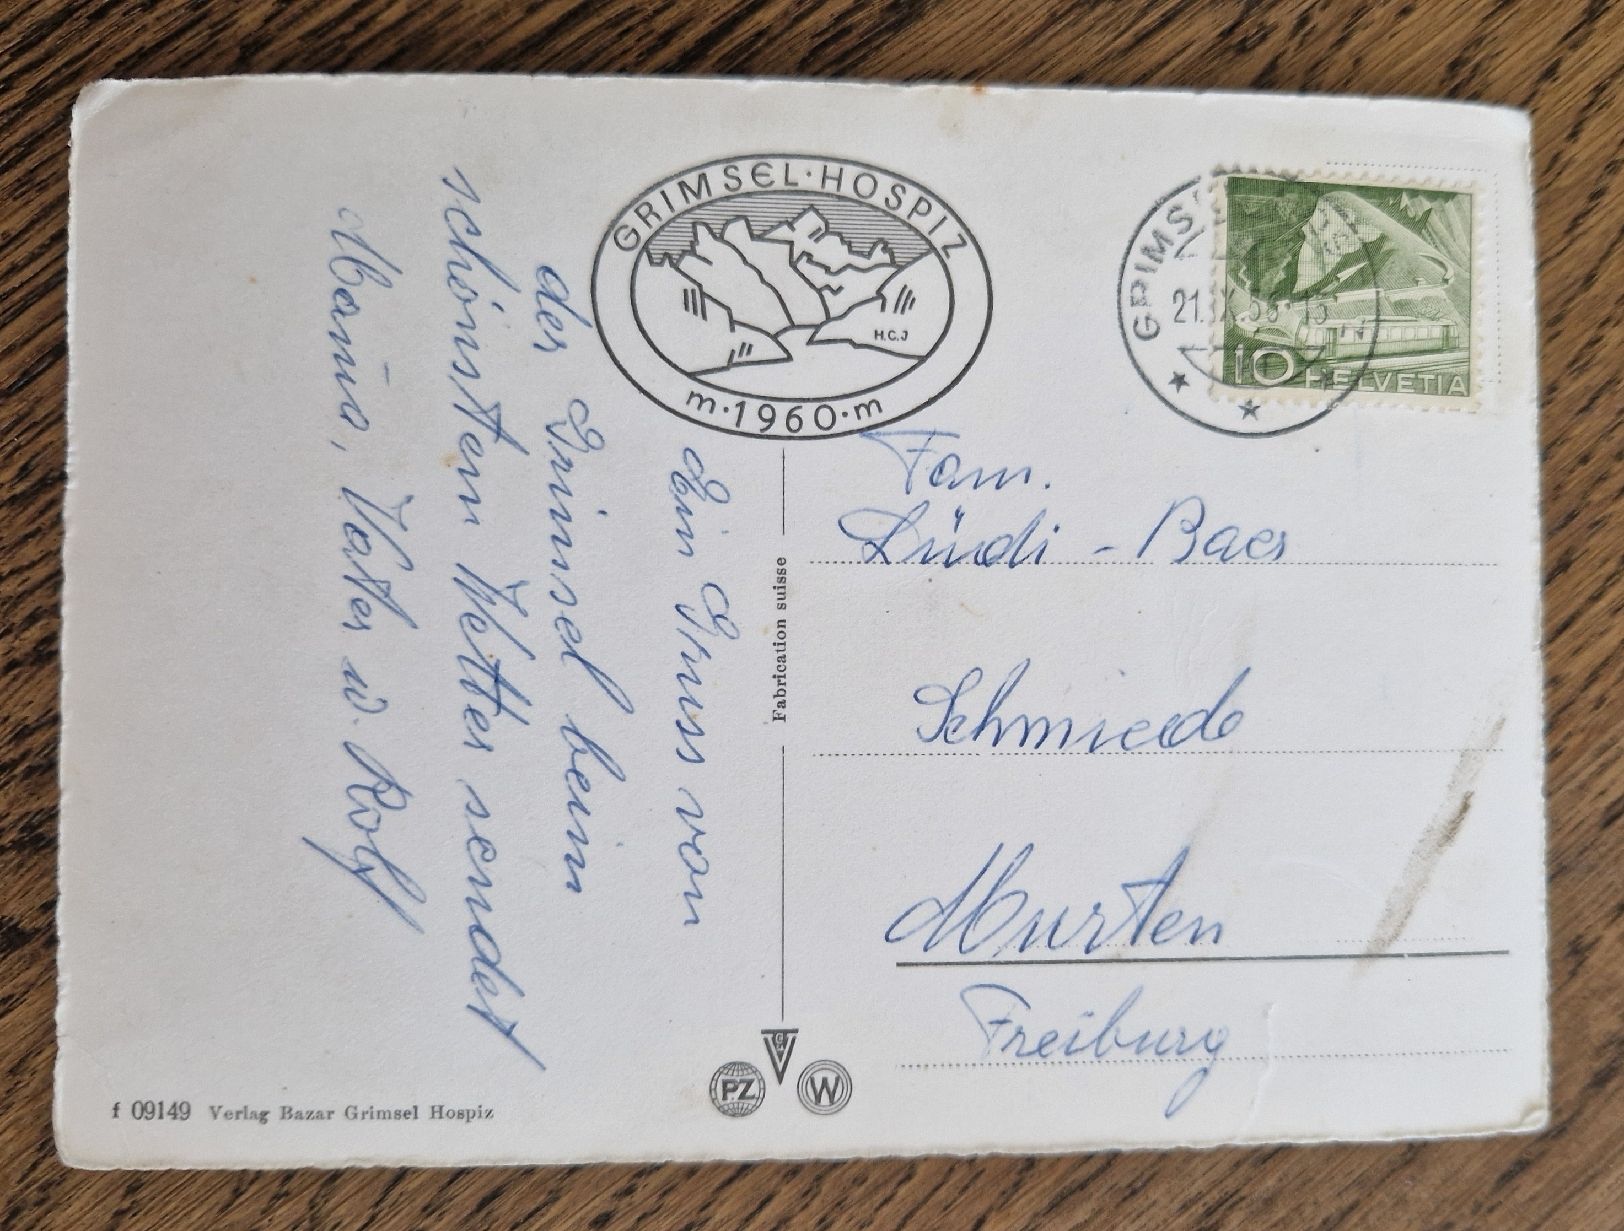 GRIMSEL·HOSPIZ
H.C.J
m·1960·m
GRIMSEL
21.IX
10 HELVETIA
Ein Gruss von
der Grimsel beim
schönsten Wetter sendet
Mama, Vater u. Rolf
Fabrication suisse
Fam.
Lüdi - Baer
Schmiede
Murten
Freiburg
PZ
W
f 09149 Verlag Bazar Grimsel Hospiz